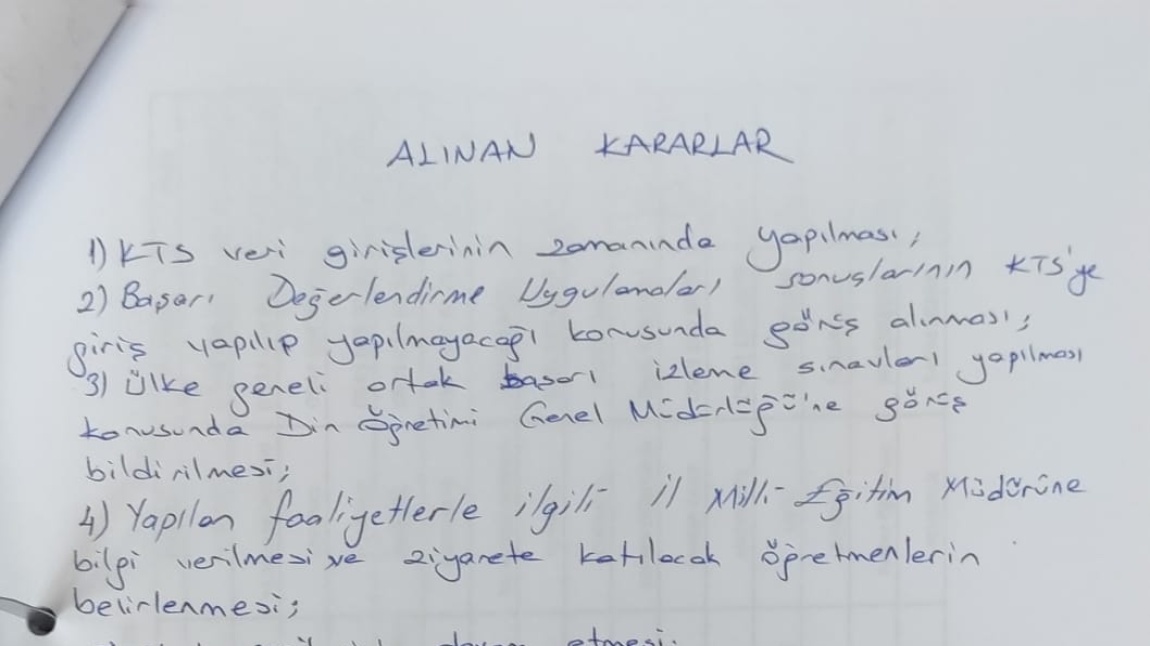 ALINAN KARARLAR
1) KTS veri girişlerinin zamanında yapılması;
2) Başarı Değerlendirme Uygulamaları sonuçlarının KTS'ye
giriş yapılıp yapılmayacağı konusunda görüş alınması;
3) Ülke geneli ortak başarı izleme sınavları yapılması
konusunda Din Öğretimi Genel Müdürlüğü'ne görüş
bildirilmesi;
4) Yapılan faaliyetlerle ilgili İl Milli Eğitim Müdürüne
bilgi verilmesi ve ziyarete katılacak öğretmenlerin
belirlenmesi;
etmesi;